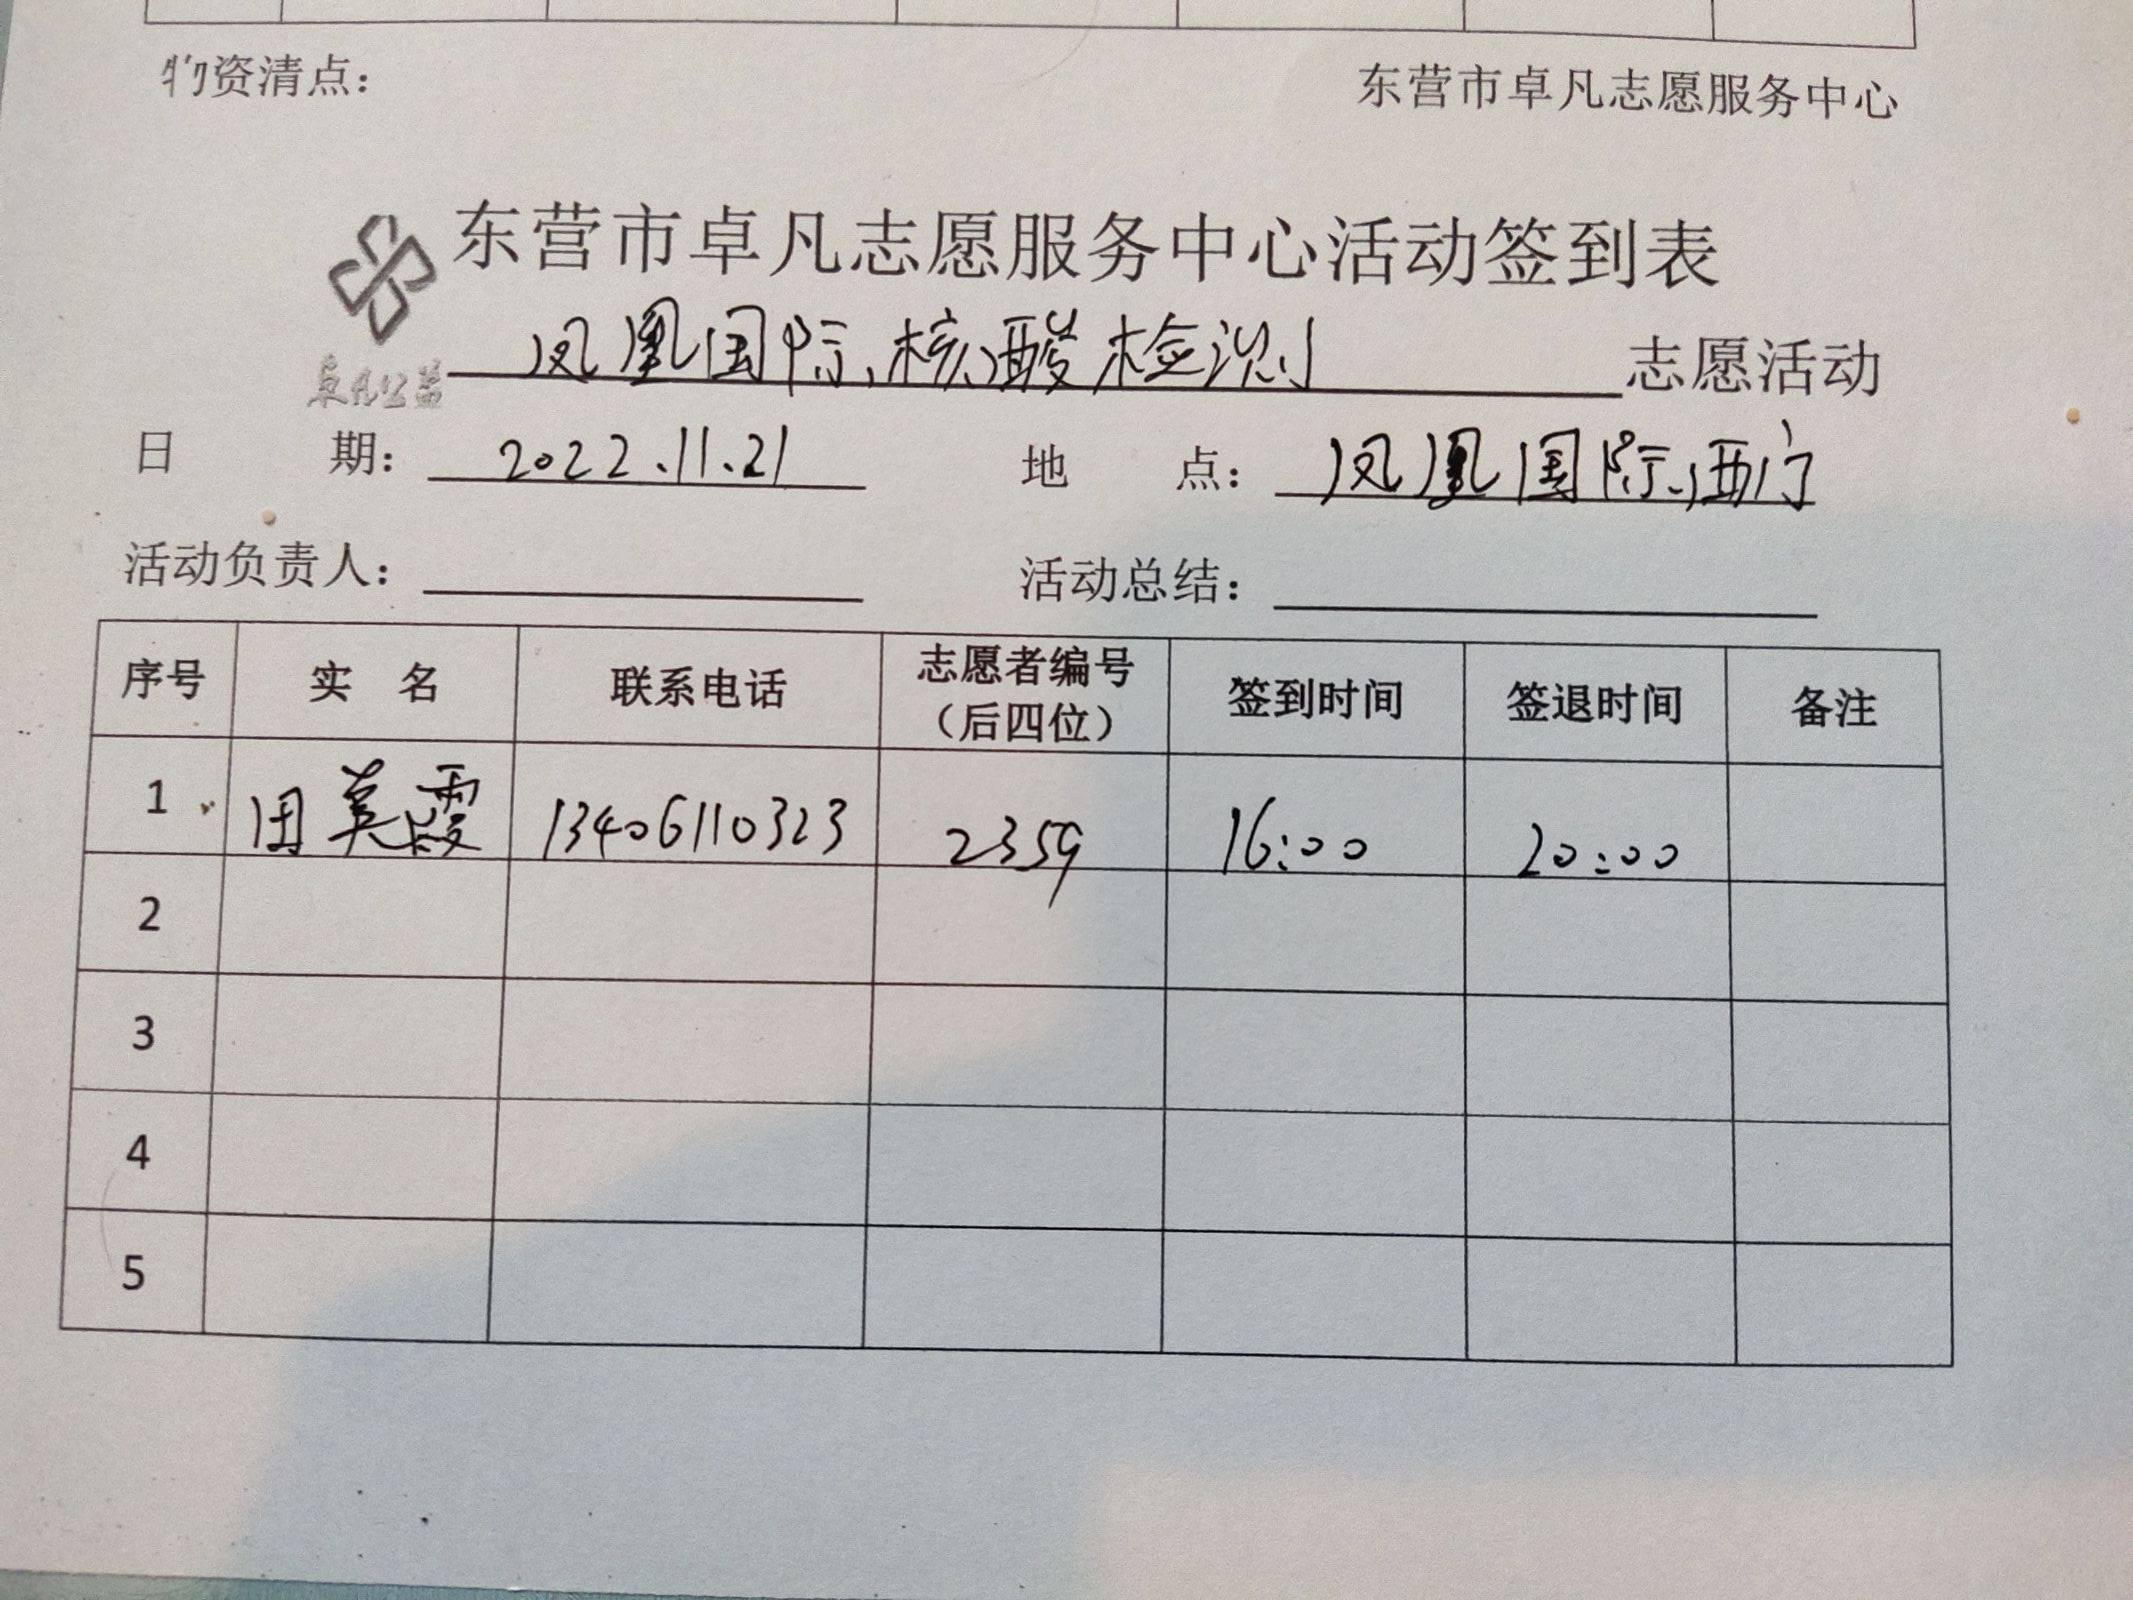 物资清点：
东营市卓凡志愿服务中心
东营市卓凡志愿服务中心活动签到表
卓凡公益
凤凰国际核酸检测 志愿活动
日 期： 2022.11.21 地 点： 凤凰国际西门
活动负责人： 活动总结：
序号 实 名 联系电话 志愿者编号（后四位） 签到时间 签退时间 备注
1 田英霞 13406110323 2359 16:00 20:00
2
3
4
5